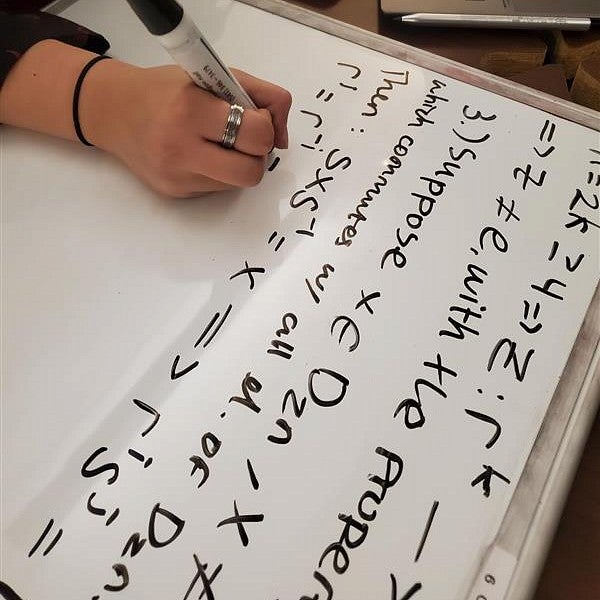 n=2k ≥ 4 => z: r^k
=> z ≠ e, with the proper
3.) Suppose x ∈ D2n - x ≠
which commutes w/ all el. of D2n.
Then: sxs^-1 = x => r^i s^j =
r^i = r^-i =